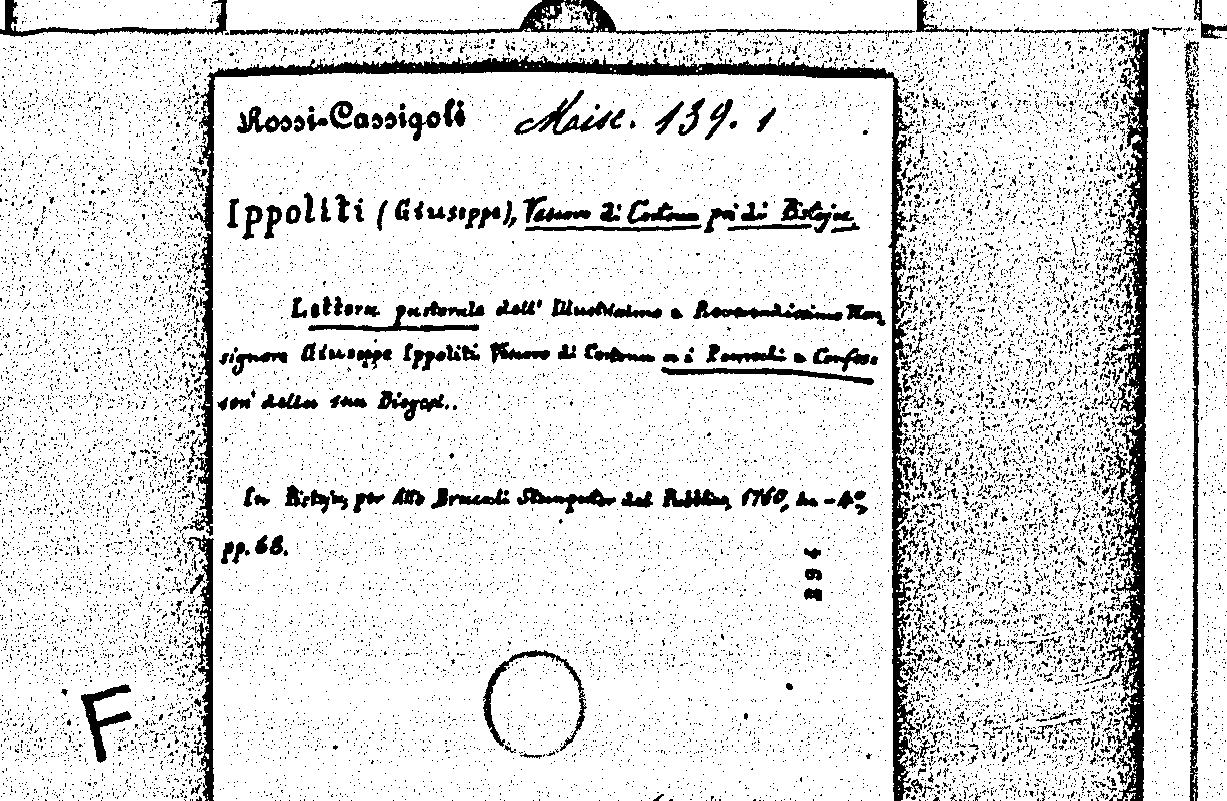 Rossi-Cassigoli Misc. 139. 1
Ippoliti (Giuseppe), Vescovo di Cortona poi di Pistoja
Lettera pastorale dell' Illustrissimo e Reverendissimo Mon,
signore Giuseppe Ippoliti Vescovo di Cortona ai Parrochi e Confes-
sori della sua Diogesi..
In Pistoja, per Atto Bracali Stampator del Pubblico, 1760, in-4°,
pp. 68.
394
F